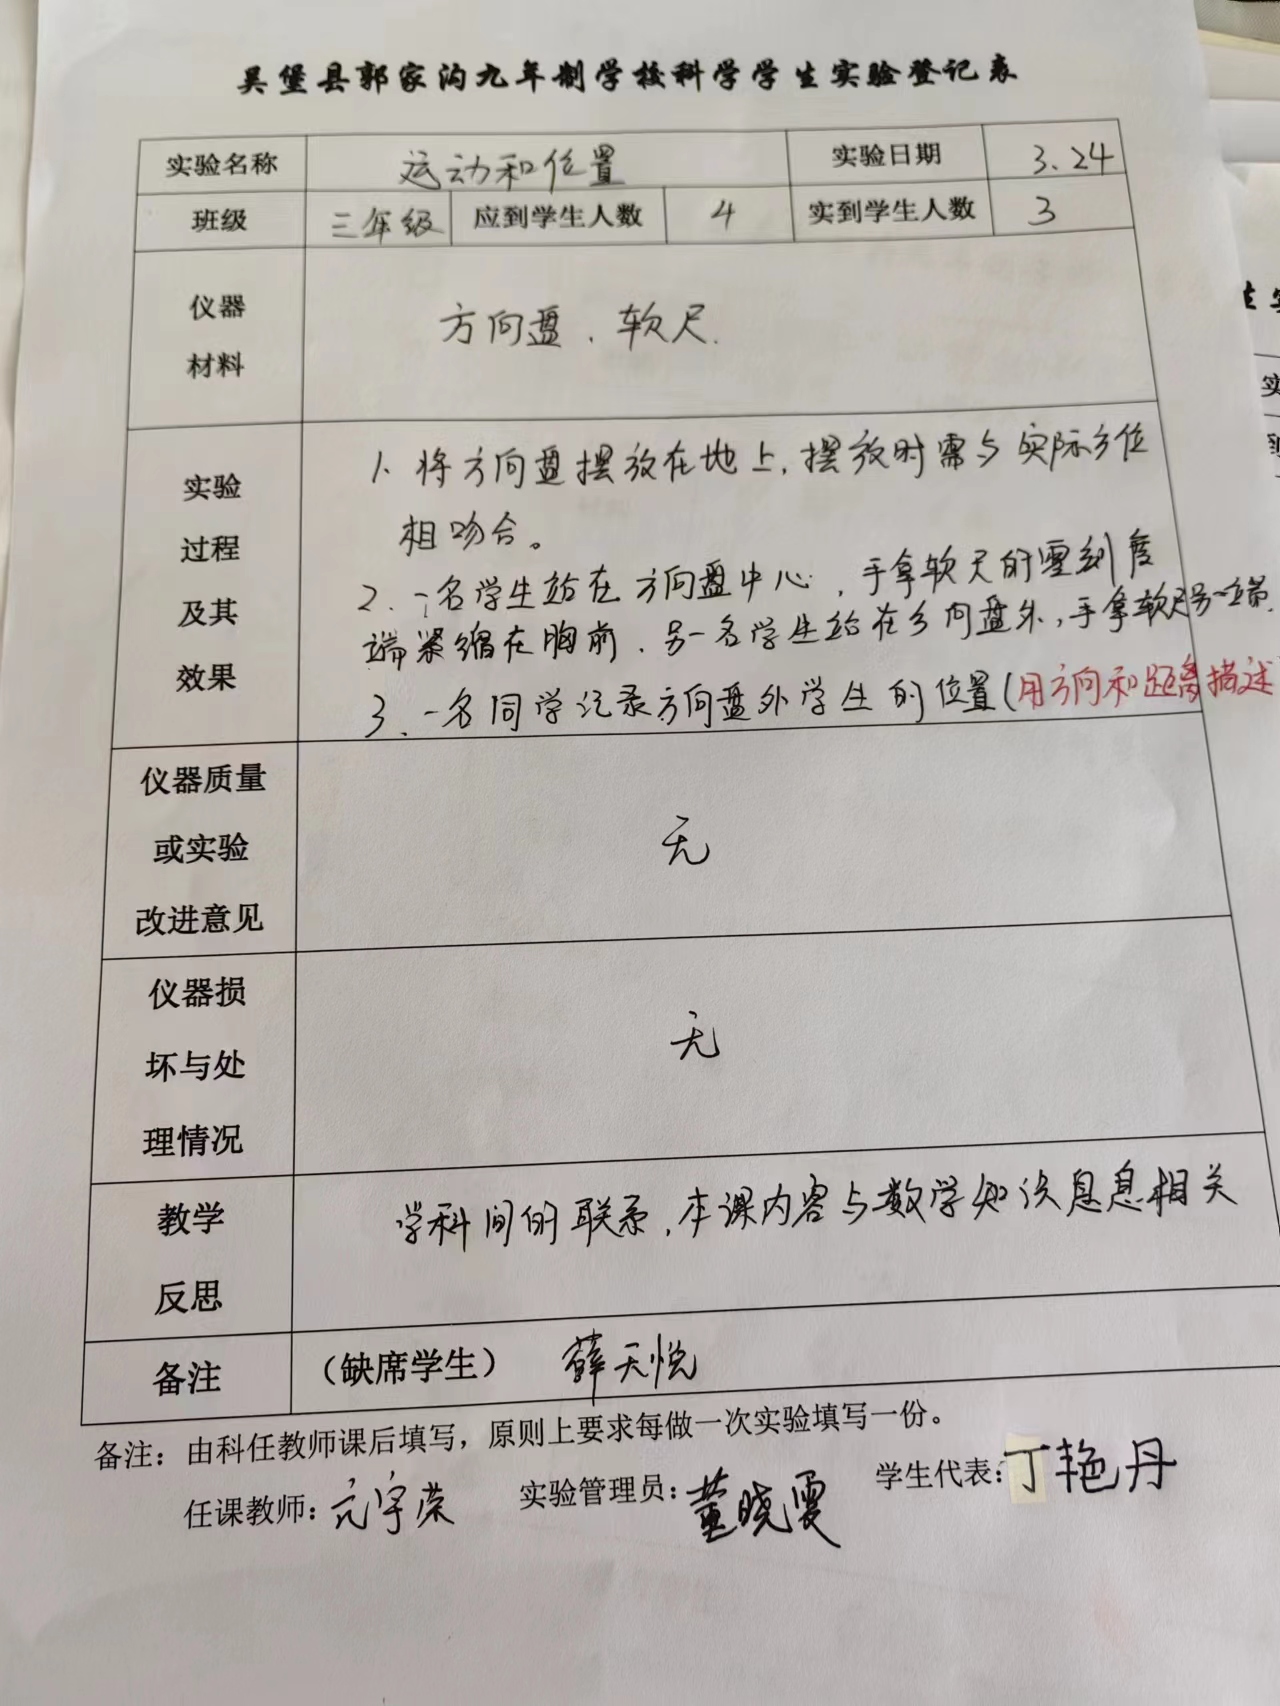 吴堡县郭家沟九年制学校科学学生实验登记表
实验名称 运动和位置 实验日期 3.24
班级 三年级 应到学生人数 4 实到学生人数 3
仪器
材料
方向盘、软尺.
实验
过程
及其
效果
1、将方向盘摆放在地上,摆放时需与实际方位
相吻合。
2、一名学生站在方向盘中心,手拿软尺的零刻度
端紧缩在胸前.另一名学生站在方向盘外,手拿软尺另一端.
3、一名同学记录方向盘外学生的位置(用方向和距离描述
仪器质量
或实验
改进意见
无
仪器损
坏与处
理情况
无
教学
反思
学科间的联系,本课内容与数学知识息息相关
备注 (缺席学生) 薛天悦
备注:由科任教师课后填写,原则上要求每做一次实验填写一份。
任课教师: 宇荣 实验管理员:董晓雯 学生代表:丁艳丹